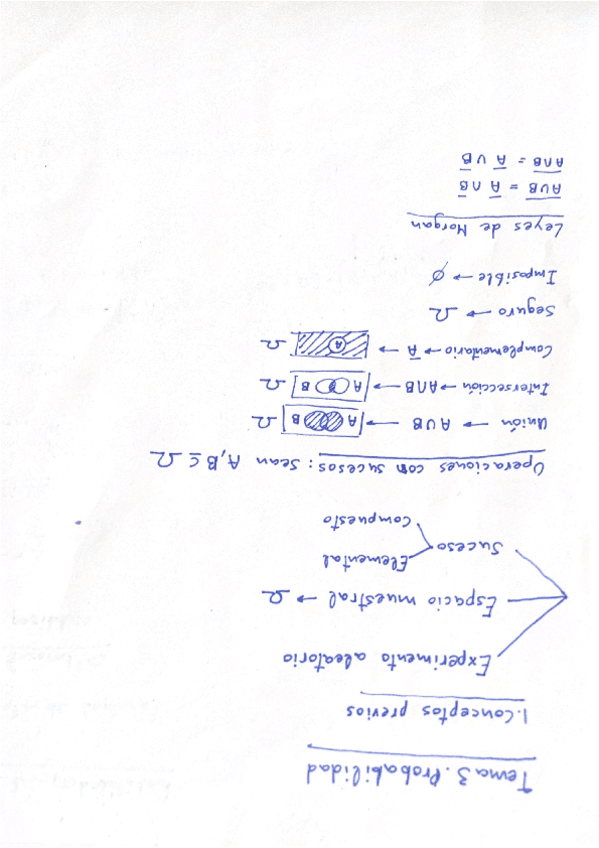 Tema 3. Probabilidad
1. Conceptos previos
Experimento aleatorio
Espacio muestral → Ω
Suceso
Elemental
Compuesto
Operaciones con sucesos: Sean A, B ⊆ Ω
Unión → A∪B → A B Ω
Intersección → A∩B → A B Ω
Complementario → A̅ → A Ω
Seguro → Ω
Imposible → ∅
Leyes de Morgan
A̅∪̅B̅ = A̅ ∩ B̅
A̅∩̅B̅ = A̅ ∪ B̅